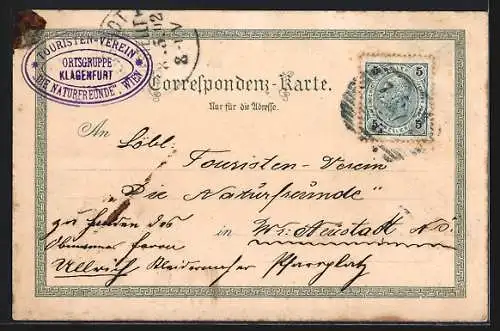 TOURISTEN-VEREIN
ORTSGRUPPE
KLAGENFURT
"DIE NATURFREUNDE" WIEN
Correspondenz-Karte.
Nur für die Adresse.
5 5
5 5
An Löbl. Touristen-Verein
"Die Naturfreunde"
zu Handen des
Obmannes Herrn in Wr. Neustadt N.Ö.
Ullrich Kleidermacher Pfarrplatz